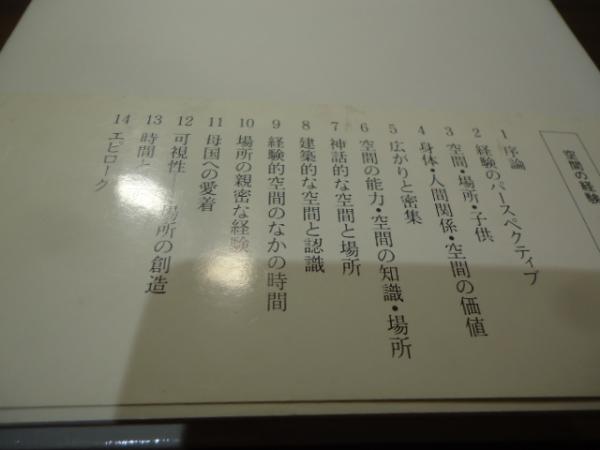 空間の経験
1 序論
2 経験のパースペクティブ
3 空間・場所・子供
4 身体・人間関係・空間の価値
5 広がりと密集
6 空間の能力・空間の知識・場所
7 神話的な空間と場所
8 建築的な空間と認識
9 経験的空間のなかの時間
10 場所の親密な経験
11 母国への愛着
12 可視性——場所の創造
13 時間と
14 エピローグ